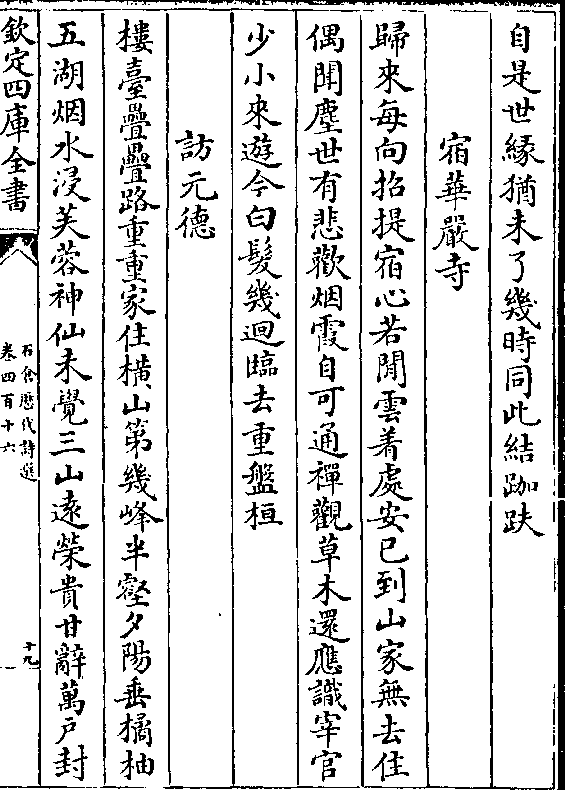 自是世緣猶未了幾時同此結跏趺
宿華嚴寺
歸來每向招提宿心若閒雲着處安已到山家無去住
偶聞塵世有悲歡烟霞自可通禪觀草木還應識宰官
少小來遊今白髮幾迴臨去重盤桓
訪元德
樓臺疊疊路重重家住橫山第幾峰半壑夕陽垂橘柚
五湖烟水浸芙蓉神仙未覺三山遠榮貴甘辭萬戶封
欽定四庫全書
石倉歷代詩選
卷四百十六
十九